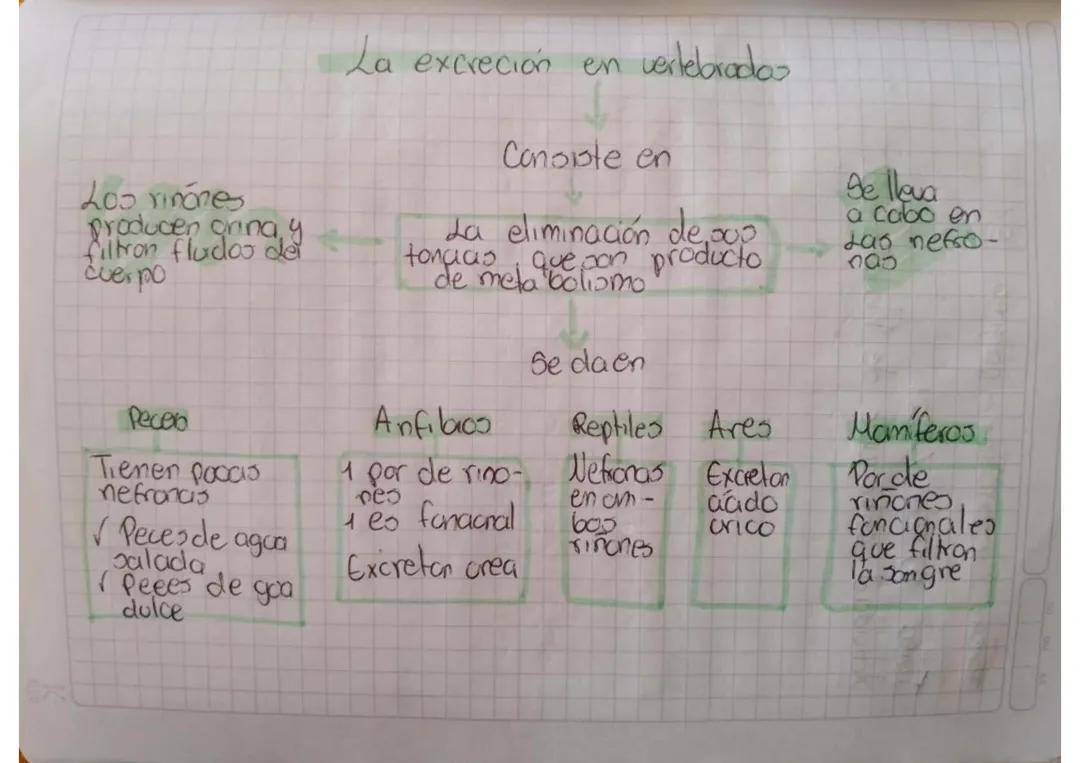 La excreción en vertebrados
Consiste en
Los riñónes
producen orina y
filtran fludos del
cuerpo
La eliminación de sus
toncias, que son producto
de metabolismo
Se lleva
a cabo en
Las nefro-
nas
Se da en
Peces
Tienen pocas
nefronas
√ Peces de agua
salada
√ Peces de goa
dulce
Anfibios
1 par de riño-
nes
1 es funcional
Excretan urea
Reptiles
Nefronas
en am-
bos
riñones
Aves
Excretan
ácido
urico
Mamíferos
Par de
riñones
funcionales
que filtran
la sangre